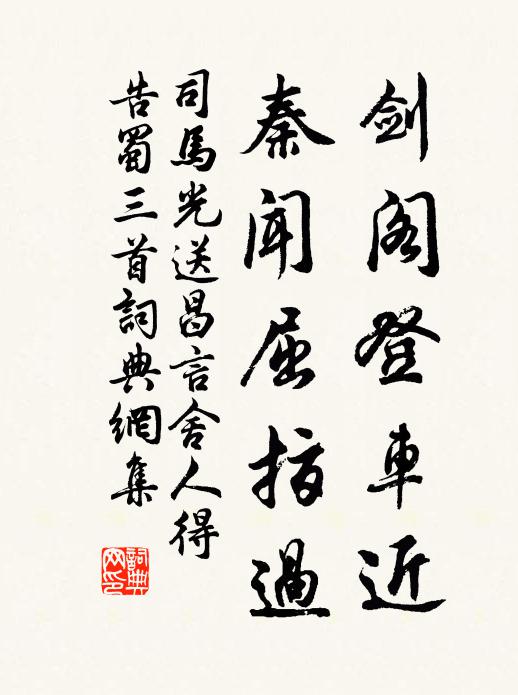 剑阁登車近
秦闻屈指過
司馬光送昌言舍人得
告蜀三首詞典網集
詞典网印